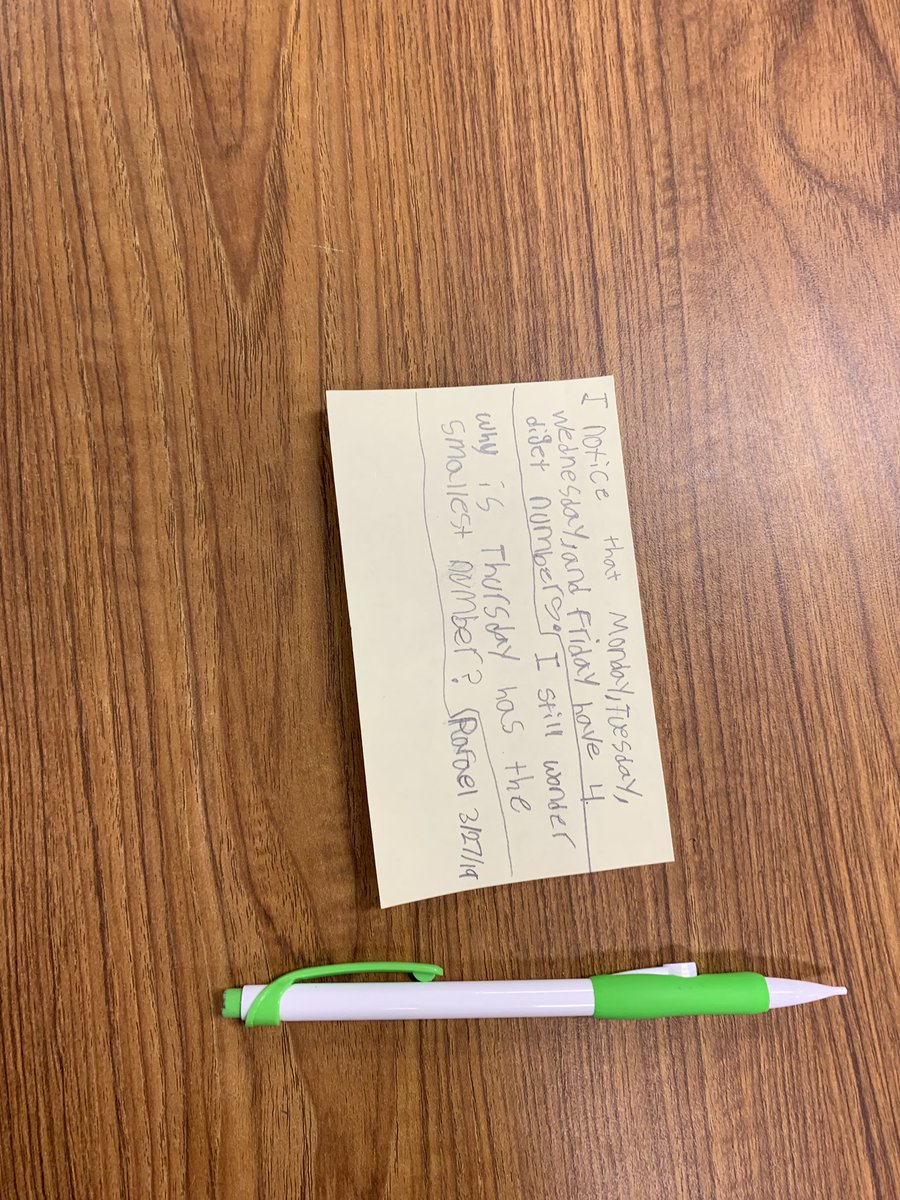 I notice that Monday, Tuesday,
wednesday, and Friday have 4
diget numbers. I still wonder
why is Thursday has the
smallest number? Rafael 3/27/19